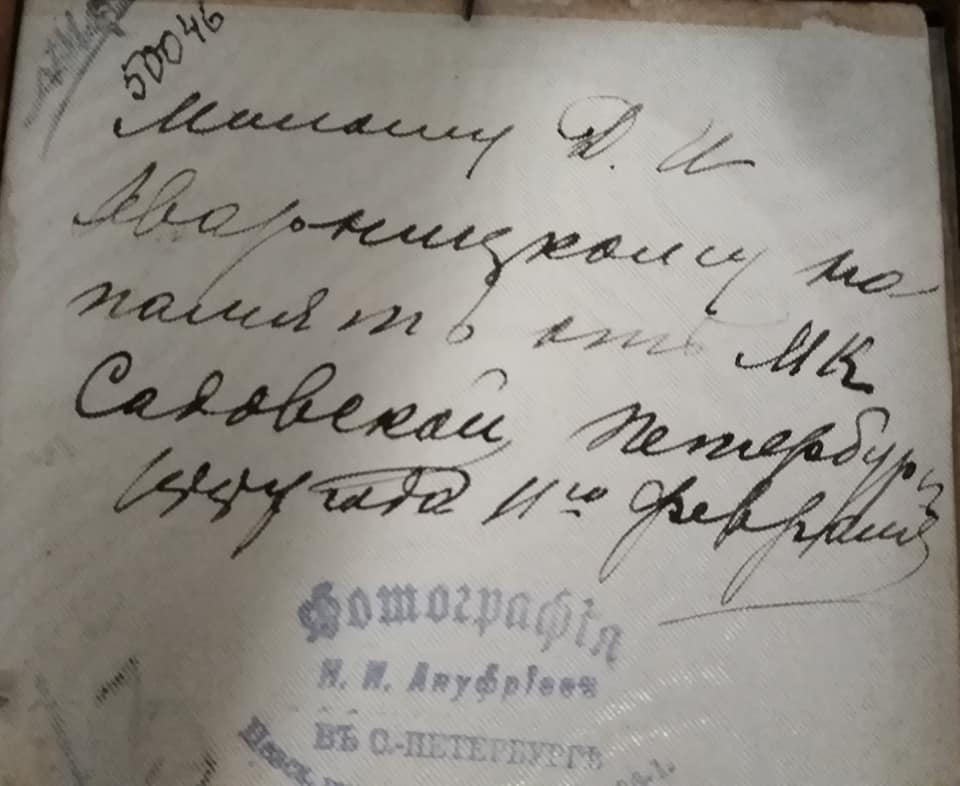 50046
Милому Д. И
Эварницкому на
память отъ МК
Садовской Петербург
1887 года 11го февраля
Фотографія
И. И. Ануфріева
ВЪ С.-ПЕТЕРБУРГѢ